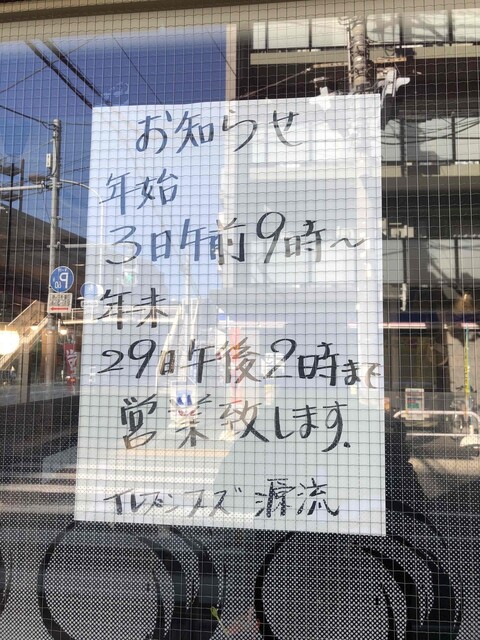 お知らせ
年始
3日午前9時～
年末
29日午後2時まで
営業致します.
イレブンフーズ 源流
P
60